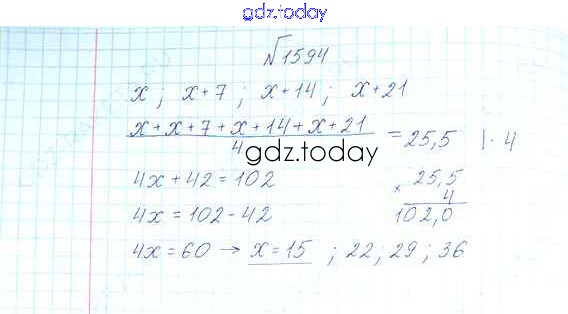 gdz.today
№1594
x ; x+7 ; x+14 ; x+21
x+x+7+x+14+x+21 / 4 = 25,5 |·4
gdz.today
4x+42=102
25,5
× 4
102,0
4x=102-42
4x=60 → x=15 ; 22 ; 29 ; 36